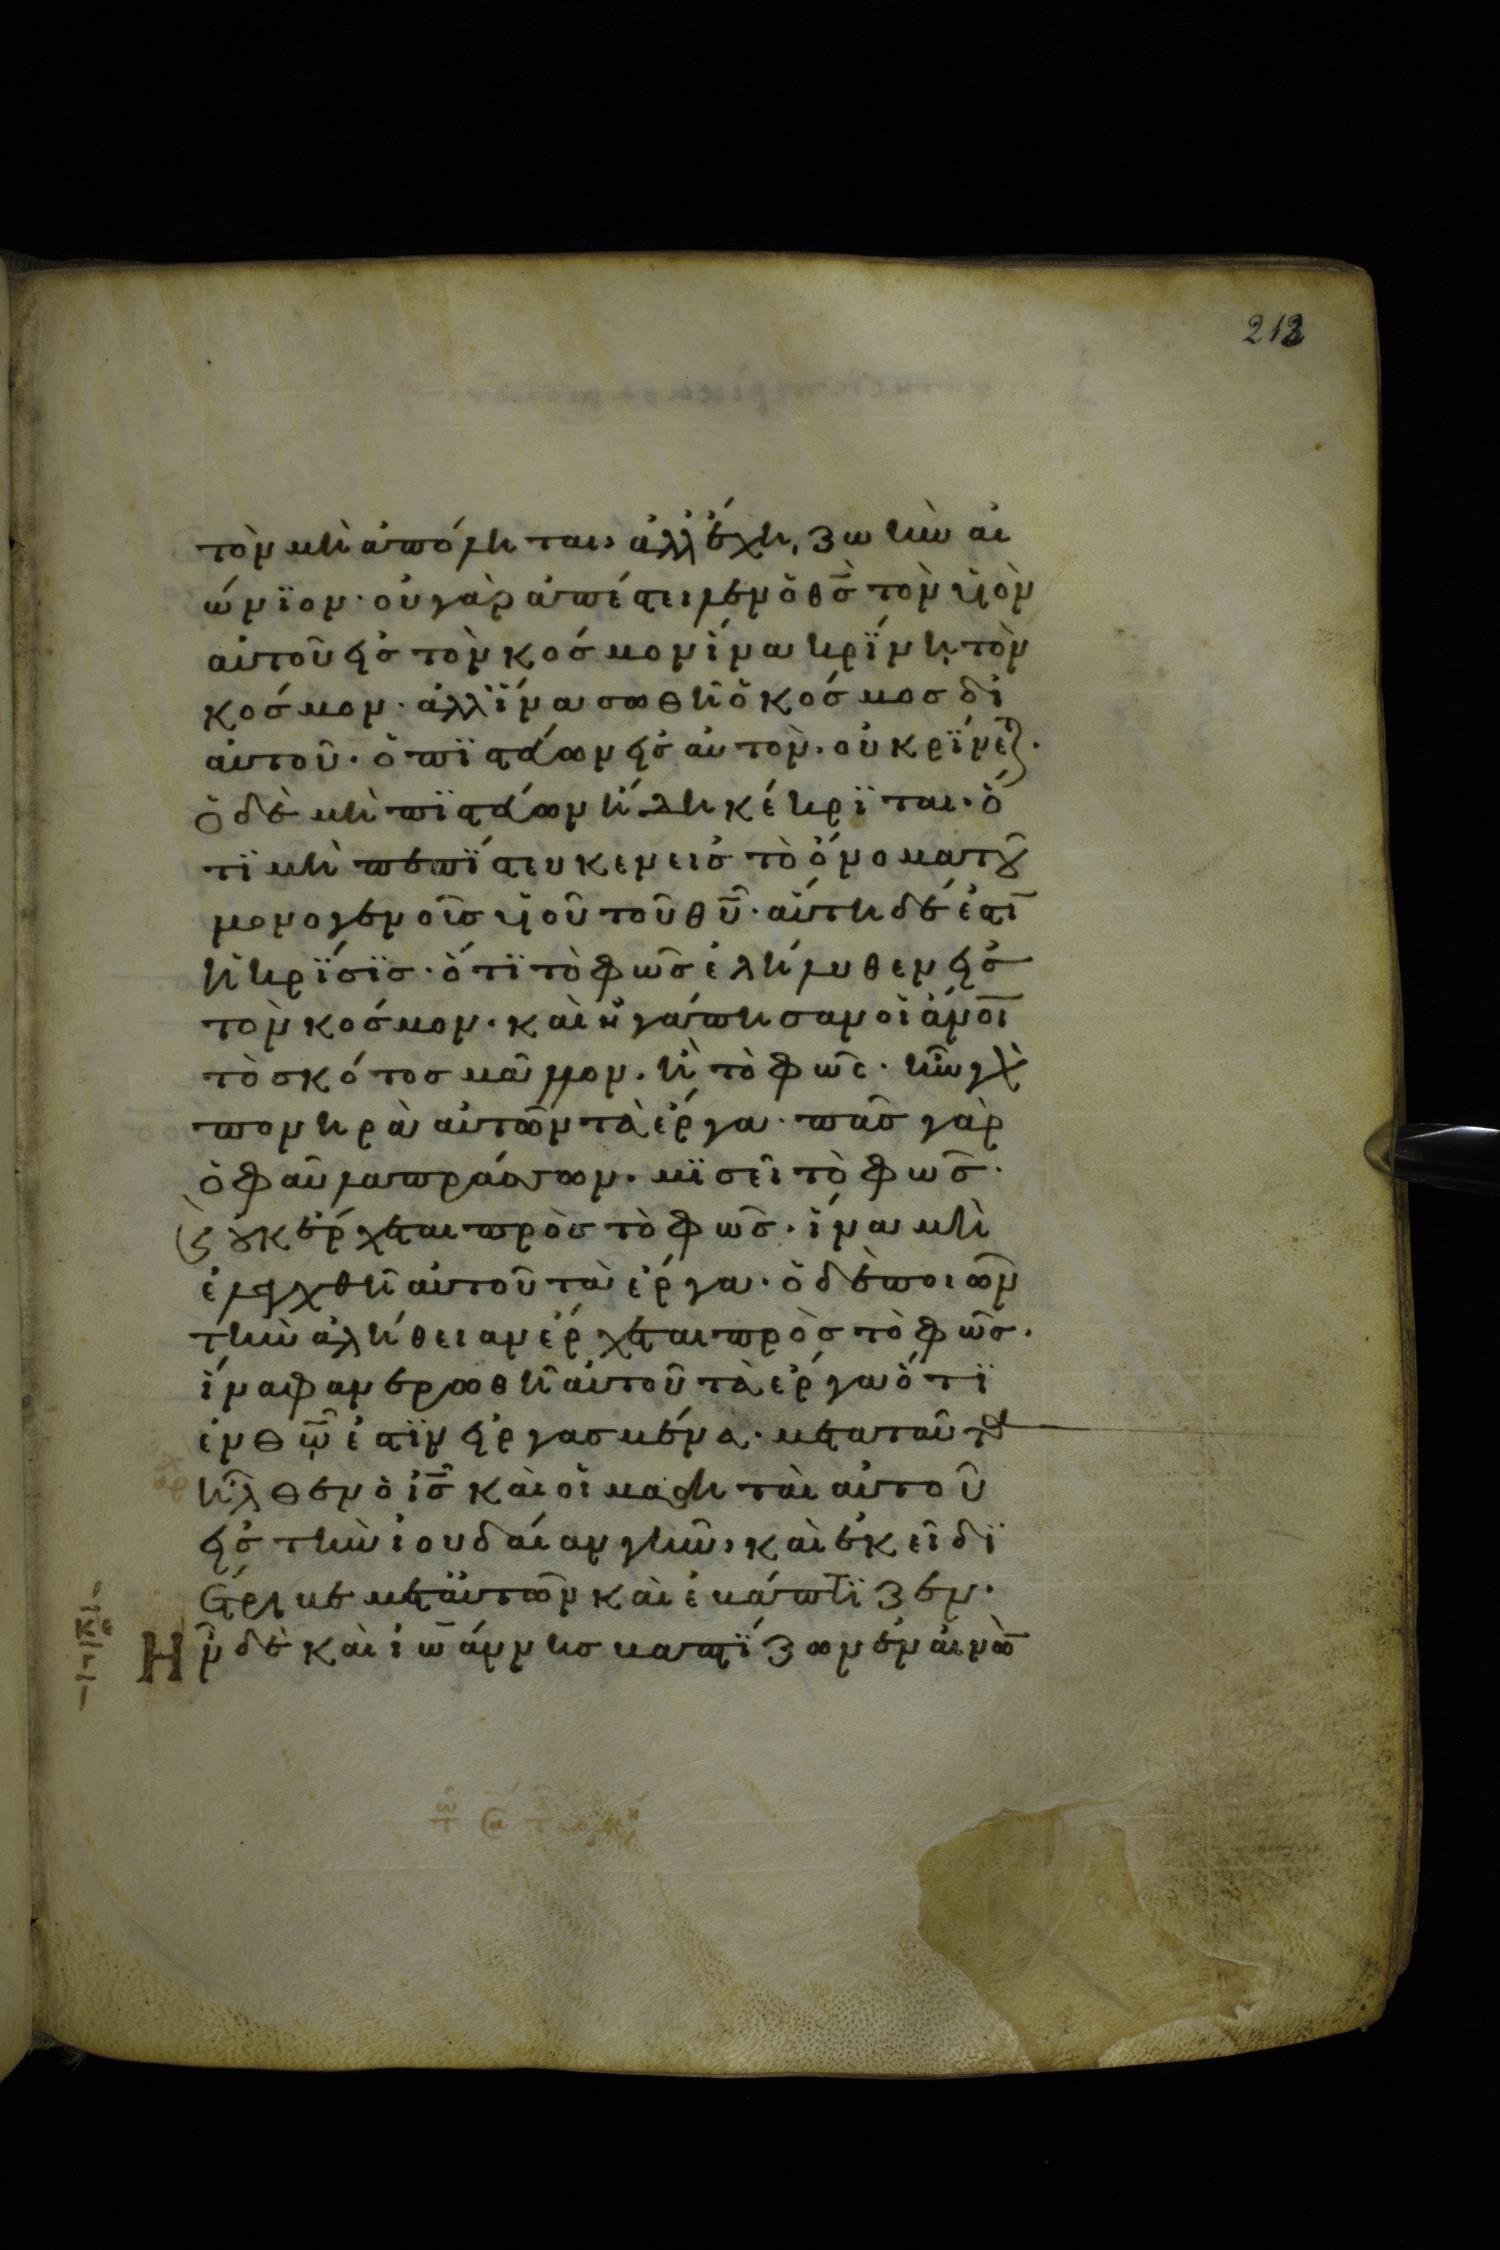 212
τὸν μὴ ἀπόληται, ἀλλ' ἔχη, ζωὴν αἰ
ώνϊον· οὐ γὰρ ἀπέστειλεν ὁ θς̅ τὸν υἱὸν
αὐτοῦ εἰς τὸν κόσμον ἵνα κρίνη, τὸν
κόσμον· ἀλλ' ἵνα σωθῆ ὁ κόσμος δι'
αὐτοῦ· ὁ πϊστεύων εἰς αὐτὸν· οὐ κρϊνεται·
ὁ δὲ μὴ πϊστεύων ἤδη κέκρϊται· ὅ
τϊ μὴ πεπίστευκεν εἰς τὸ ὄνομα τοῦ
μονογενοῦς υἱοῦ τοῦ θυ̅· αὕτη δέ ἐστϊ
ἡ κρίσϊς· ὅτϊ τὸ φῶς ἐλήλυθεν εἰς
τὸν κόσμον· καὶ ἠγάπησαν οἱ ἄνοι̅
τὸ σκότος μᾶλλον· ἢ τὸ φῶς· ἦν γὰρ
πονηρὰ αὐτῶν τὰ ἔργα· πᾶς γὰρ
ὁ φαῦλα πράσσων· μϊσεῖ τὸ φῶς·
(καὶ) οὐκ ἔρχεται πρὸς τὸ φῶς· ἵνα μὴ
ἐλεγχθῆ αὐτοῦ τὰ ἔργα· ὁ δὲ ποιῶν
τὴν ἀλήθειαν ἔρχεται πρὸς τὸ φῶς·
ἵνα φανερωθῆ αὐτοῦ τὰ ἔργα ὅτϊ
ἐν θω̅ ἐστϊν εἰργασμένα· μετα ταῦτα
ἦλθεν ὁ ις̅ καὶ οἱ μαθηταὶ αὐτοῦ
εἰς τὴν ἰουδαίαν γῆν, καὶ ἐκεῖ δϊ
έτρϊβε μετ' αὐτῶν καὶ ἐβάπτϊζεν·
Ἦν δὲ καὶ ἰω̅άννης βαπτίζων ἐν αἰνὼν